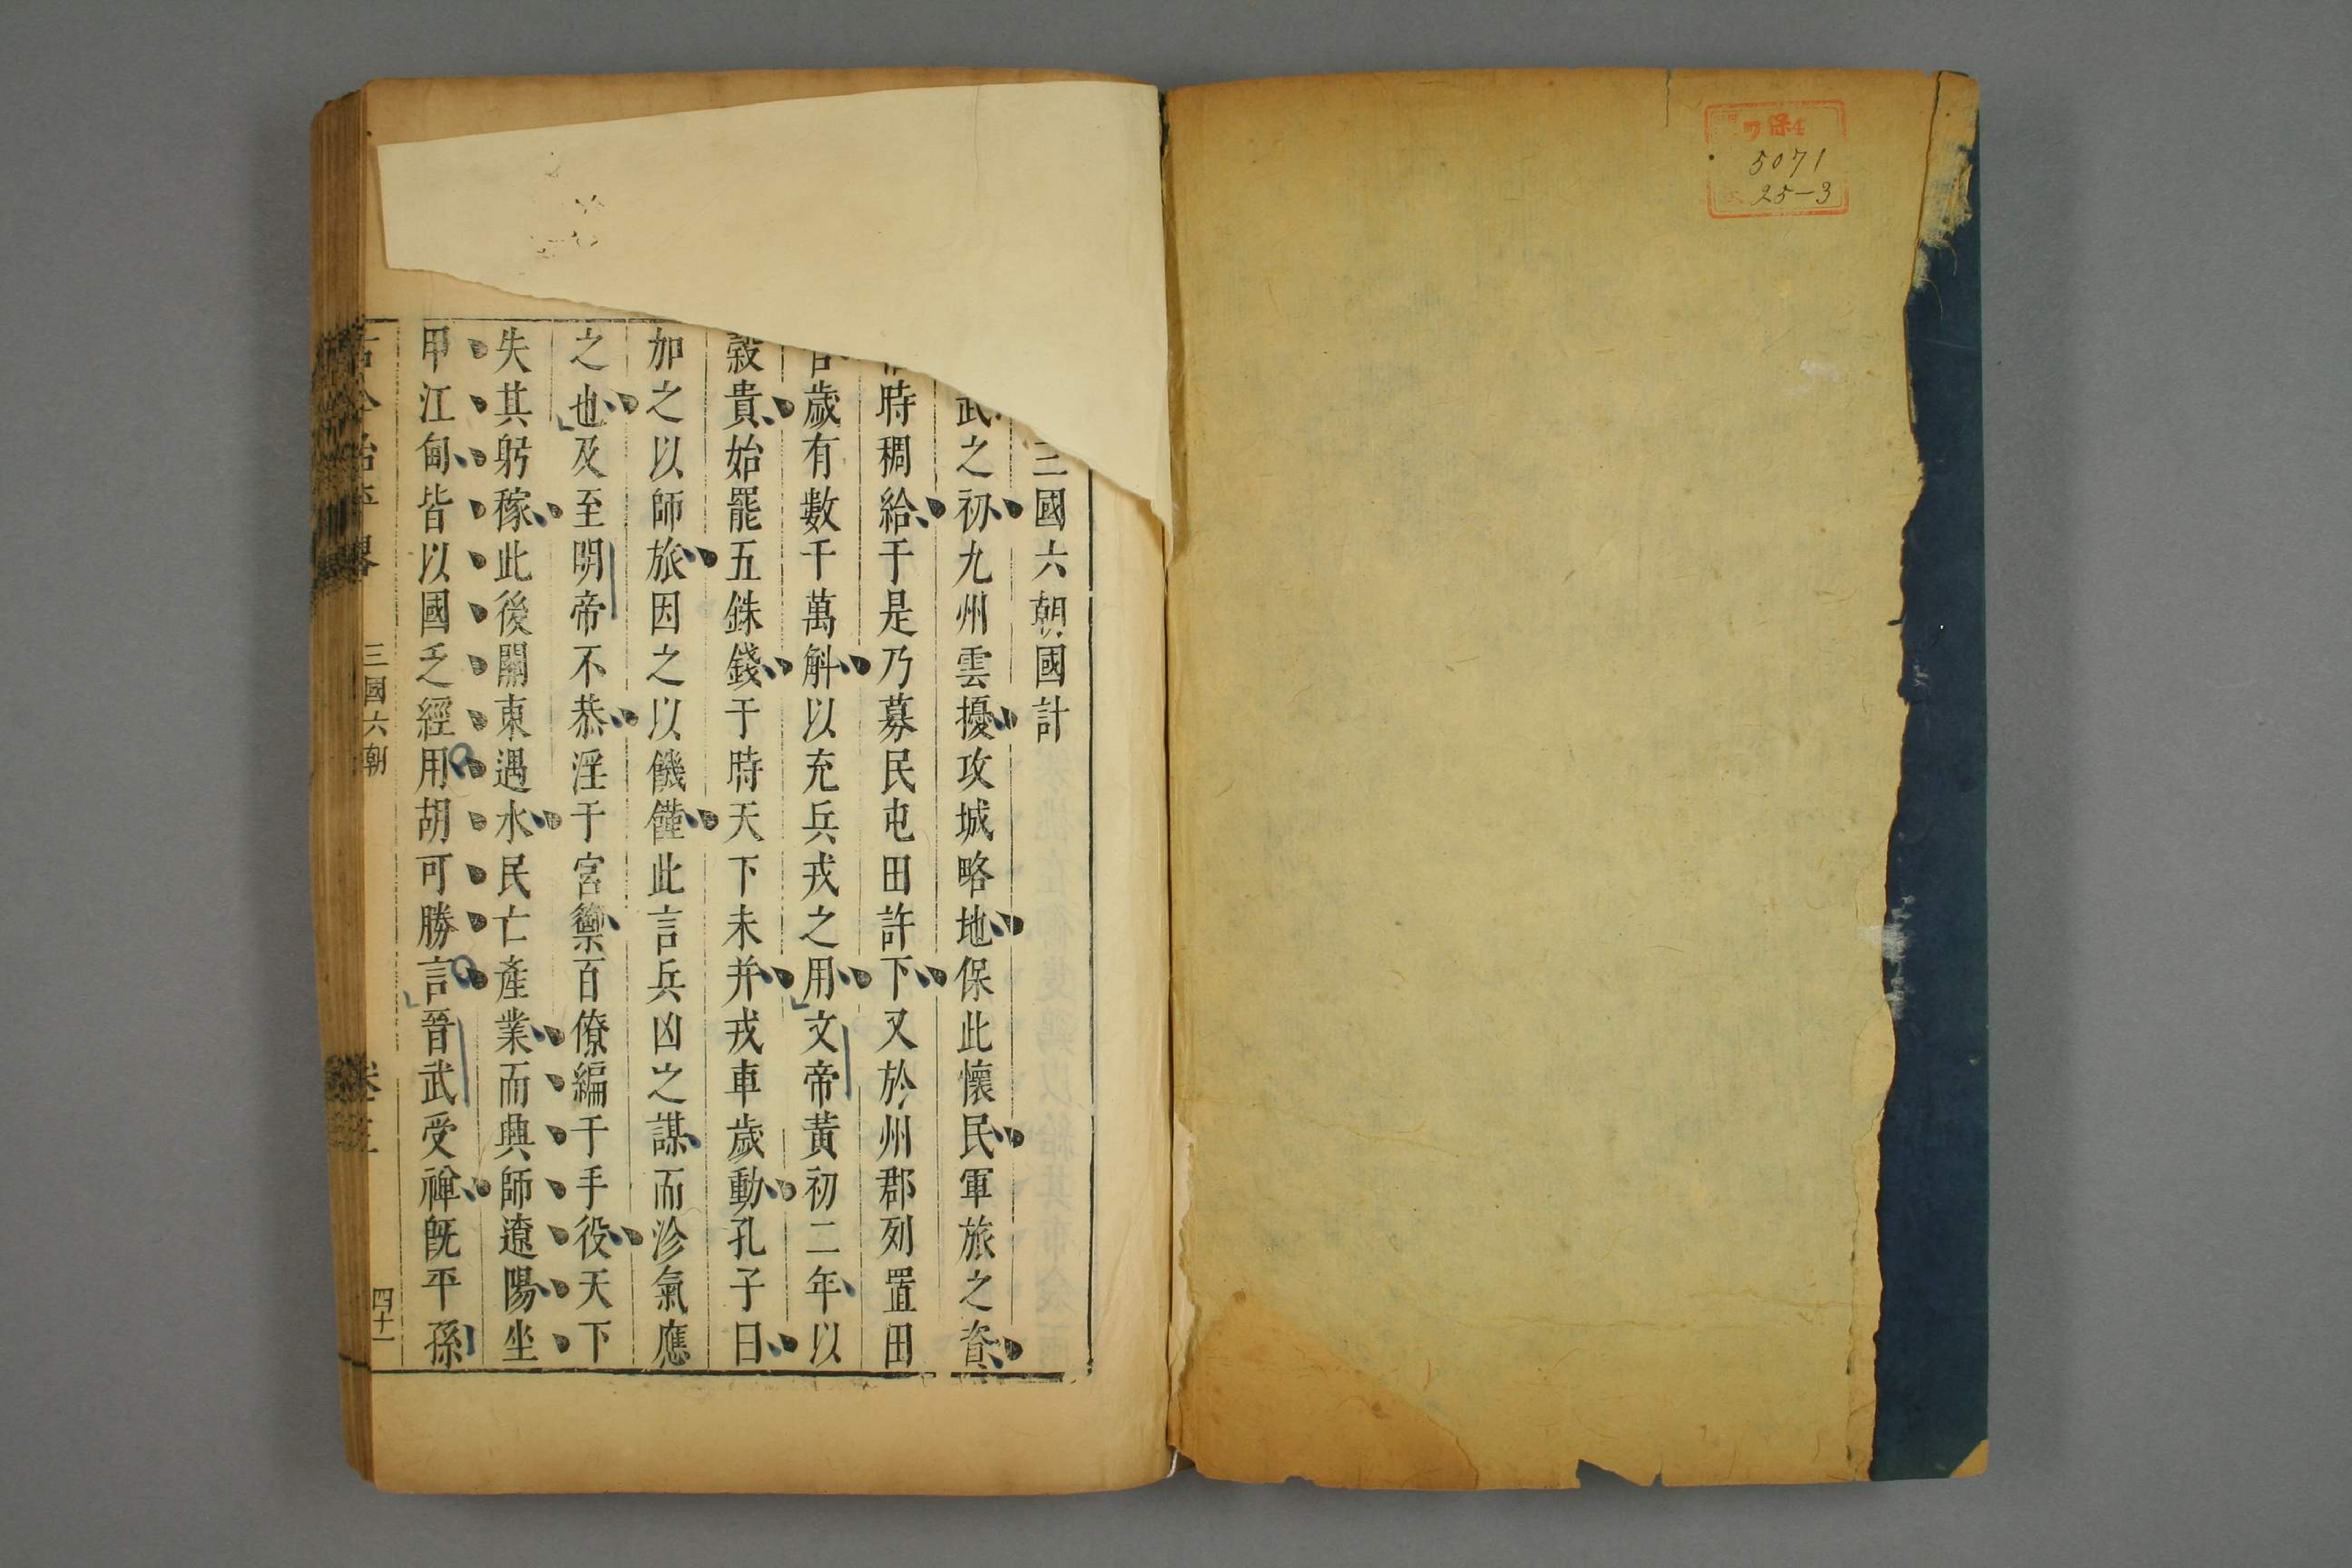 保
5071
25-3
三國六朝國計
武之初九州雲擾攻城略地保此懷民軍旅之資
時稠給于是乃募民屯田許下又於州郡列置田
歲有數千萬斛以充兵戎之用文帝黃初二年以
穀貴始罷五銖錢于時天下未并戎車歲動孔子曰
加之以師旅因之以饑饉此言兵凶之謀而沴氣應
之也及至明帝不恭淫于宮籞百僚編于手役天下
失其躬稼此後關東遇水民亡產業而興師遼陽坐
甲江甸皆以國乏經用胡可勝言晉武受禪旣平孫
三國六朝
四十一